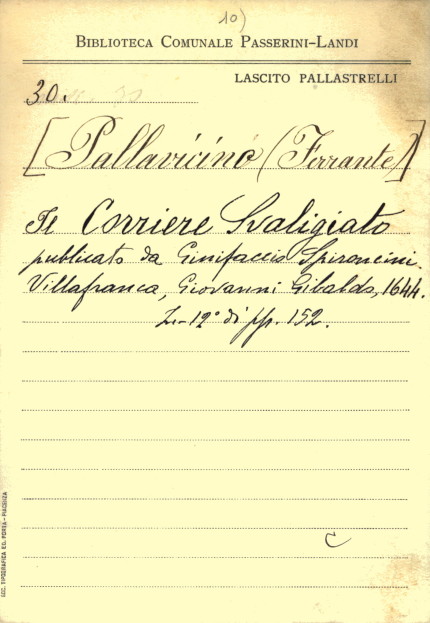 10)
BIBLIOTECA COMUNALE PASSERINI-LANDI
LASCITO PALLASTRELLI
30.
[Pallavicino (Ferrante)]
Il Corriere Svaligiato
publicato da Ginifaccio Spironcini.
Villafranca, Giovanni Gibaldo, 1644.
In-12° di pp. 152.
C
SOC. TIPOGRAFICA ED. PORTA - PIACENZA